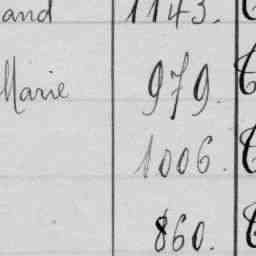 and 1143.
Marie 979.
1006.
860.